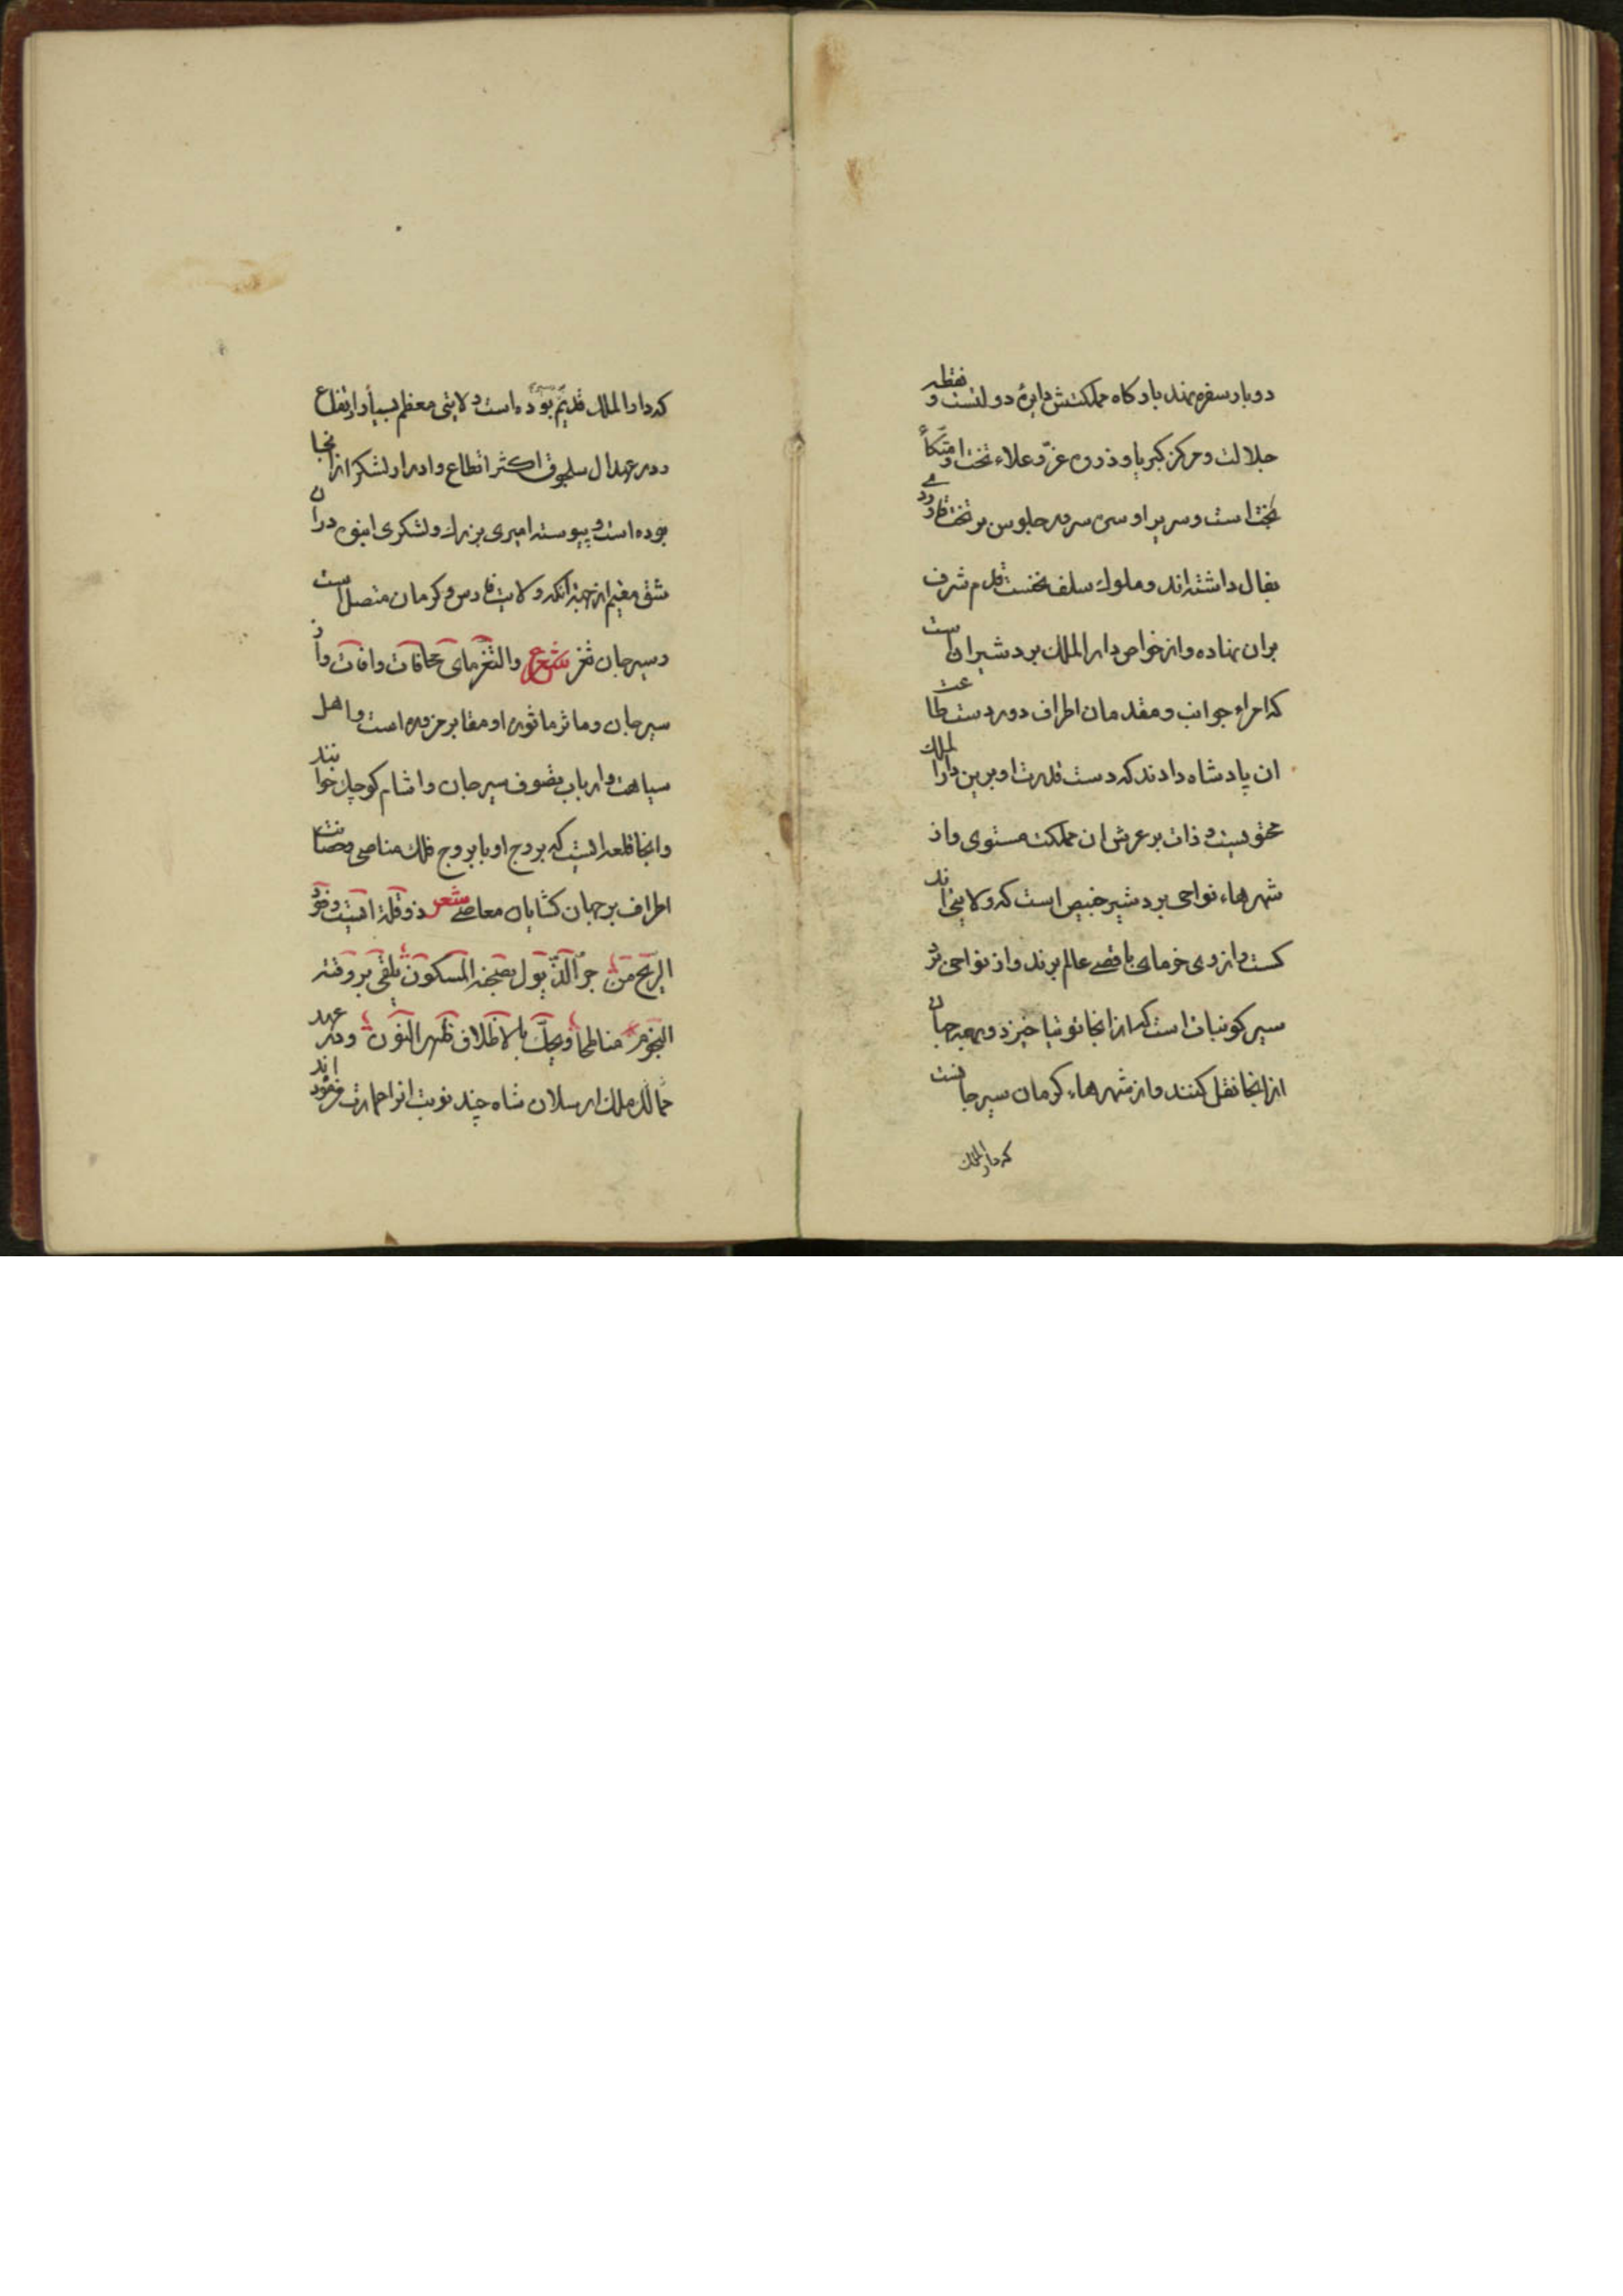 دوبار سفره نهند بارکاه مملکتش دایره دولتست و نقطه
جلالت و مرکز کبریا و ذروه عزّ و علاء تخت او متّکأ
بختست و سریر او سر جلوس بر تخت
بفال داشته اند و ملوک سلف نخست قدم شرف
بران نهاده و از خواص دار الملک بردشیر ان است
که امراء جوانب و مقدمان اطراف دور دست طاعت
ان پادشاه دارند که دست قدرت او برین دار الملک
محتویست و ذات بر عرش ان مملکت مستوی و از
شهرهاء نواحی بردشیر خبیص است که ولایتی اند
کست و از وی خرمای باقصی عالم برند و از نواحی برد
سیر کوبنان است که از انجا توتیا خیزد و بهمه جهان
از انجا نقل کنند و از شهرهاء کرمان سیرجانست
که دار الملک
که دار الملک قدیم بوده است و ولایتی معظم بسیار ارتفاع
و در عهد ال سلجوق اکثر اقطاع و ادرار لشکر از انجا
بوده است و پیوسته امیری بزرك و لشکری انبوه دران
شق مقیم از جهة انکه ولایت فارس و کرمان متصل است
و سیرجان ثغر شعر والثغر مأوی مخافات وافات و از
سیرجان و ماثر ماثوره او مقابر مزوره است و اهل
سیاحت و ارباب تصوف سیرجان را شام کوچک خوانند
و انجا قلعه ایست که بروج او با بروج فلک مناصی
اطراف بر جهان کشایان معاصی شعر ذو قلة
الریح من المسکون یلقی بروقته
النجوم مناطحا ویحك بالاظلاف ظهر النون و در عهد
ملک ارسلان شاه چند نوبت انرا عمارت فرموده اند